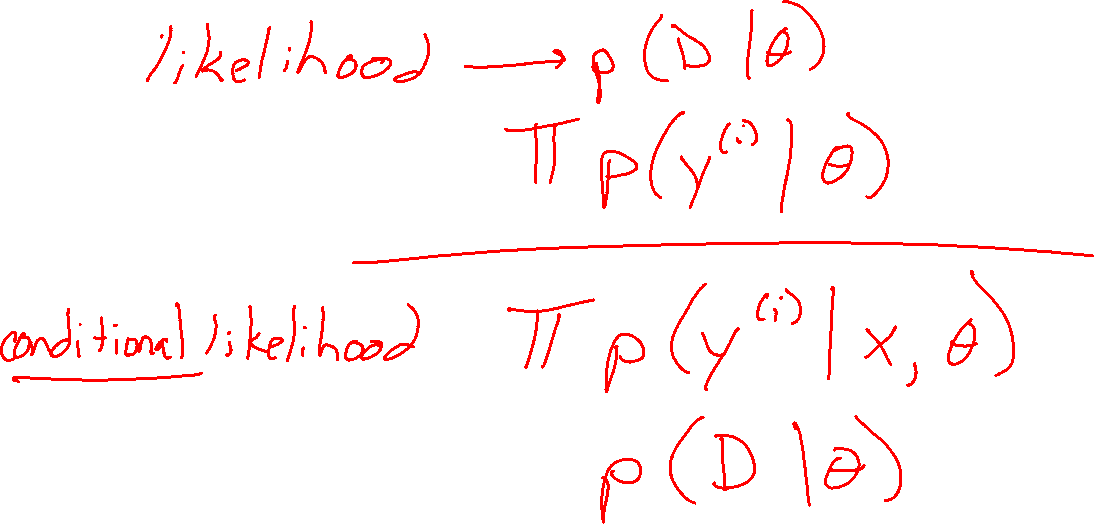 likelihood → p(D|θ)
∏ p(y⁽ⁱ⁾|θ)
conditional likelihood ∏ p(y⁽ⁱ⁾|x, θ)
p(D|θ)